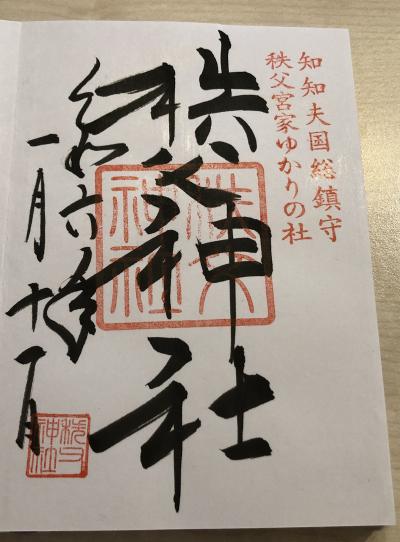 知知夫国総鎮守
秩父宮家ゆかりの社
秩父神社
秩父神社
令和六年
一月十一日
秩父神社